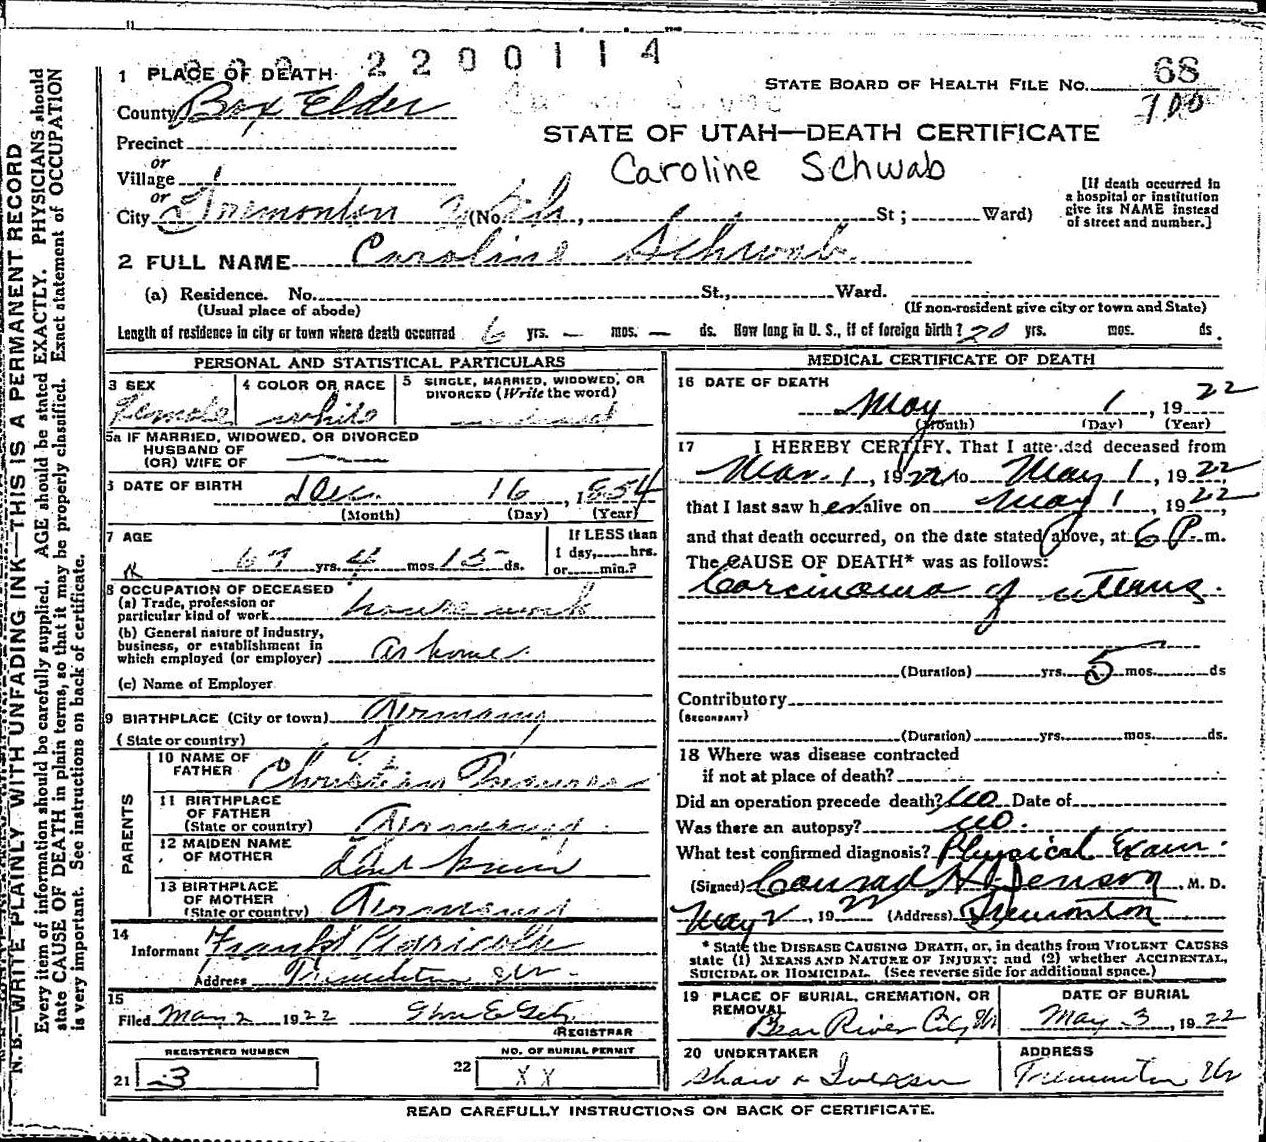 2200114
1 PLACE OF DEATH
STATE BOARD OF HEALTH FILE No. 68
County Box Elder
700
STATE OF UTAH—DEATH CERTIFICATE
Precinct
or
Village
Caroline Schwab
or
City Tremonton (No. , St; Ward)
[If death occurred in a hospital or institution give its NAME instead of street and number.]
2 FULL NAME Caroline Schwab
(a) Residence. No. St., Ward.
(Usual place of abode) (If non-resident give city or town and State)
Length of residence in city or town where death occurred 6 yrs. — mos. — ds. How long in U. S., if of foreign birth? 20 yrs. mos. ds.
PERSONAL AND STATISTICAL PARTICULARS
3 SEX Female
4 COLOR OR RACE white
5 SINGLE, MARRIED, WIDOWED, OR DIVORCED (Write the word)
5a IF MARRIED, WIDOWED, OR DIVORCED
HUSBAND OF
(OR) WIFE OF
6 DATE OF BIRTH Dec. 16, 1854
(Month) (Day) (Year)
7 AGE 67 yrs. 4 mos. 15 ds.
If LESS than 1 day, hrs. or min.?
8 OCCUPATION OF DECEASED
(a) Trade, profession or particular kind of work house work
(b) General nature of industry, business, or establishment in which employed (or employer) at home
(c) Name of Employer
9 BIRTHPLACE (City or town) Germany
(State or country)
PARENTS
10 NAME OF FATHER Christian
11 BIRTHPLACE OF FATHER (State or country) Germany
12 MAIDEN NAME OF MOTHER dont know
13 BIRTHPLACE OF MOTHER (State or country) Germany
14 Informant Frank Agricola
Address Tremonton Ut.
15 Filed May 2 1922
REGISTRAR
REGISTERED NUMBER
21 3
NO. OF BURIAL PERMIT
22 XX
MEDICAL CERTIFICATE OF DEATH
16 DATE OF DEATH
May 1, 1922
(Month) (Day) (Year)
17 I HEREBY CERTIFY, That I attended deceased from
Mar. 1, 1922 to May 1, 1922,
that I last saw her alive on May 1, 1922,
and that death occurred, on the date stated above, at 6 P. m.
The CAUSE OF DEATH* was as follows:
Carcinoma of uterus.
(Duration) yrs. 5 mos. ds
Contributory
(SECONDARY)
(Duration) yrs. mos. ds.
18 Where was disease contracted
if not at place of death?
Did an operation precede death? no Date of
Was there an autopsy? no.
What test confirmed diagnosis? Physical Exam.
(Signed) Conrad H. Jenson, M. D.
May 2, 1922 (Address) Tremonton
* State the DISEASE CAUSING DEATH, or, in deaths from VIOLENT CAUSES
state (1) MEANS AND NATURE OF INJURY; and (2) whether ACCIDENTAL,
SUICIDAL OR HOMICIDAL. (See reverse side for additional space.)
19 PLACE OF BURIAL, CREMATION, OR REMOVAL
Bear River City Ut
DATE OF BURIAL
May 3, 1922
20 UNDERTAKER
Shaw & Iverson
ADDRESS
Tremonton Ut
READ CAREFULLY INSTRUCTIONS ON BACK OF CERTIFICATE.
N. B.—WRITE PLAINLY WITH UNFADING INK—THIS IS A PERMANENT RECORD
Every item of information should be carefully supplied. AGE should be stated EXACTLY. PHYSICIANS should
state CAUSE OF DEATH in plain terms, so that it may be properly classified. Exact statement of OCCUPATION
is very important. See instructions on back of certificate.